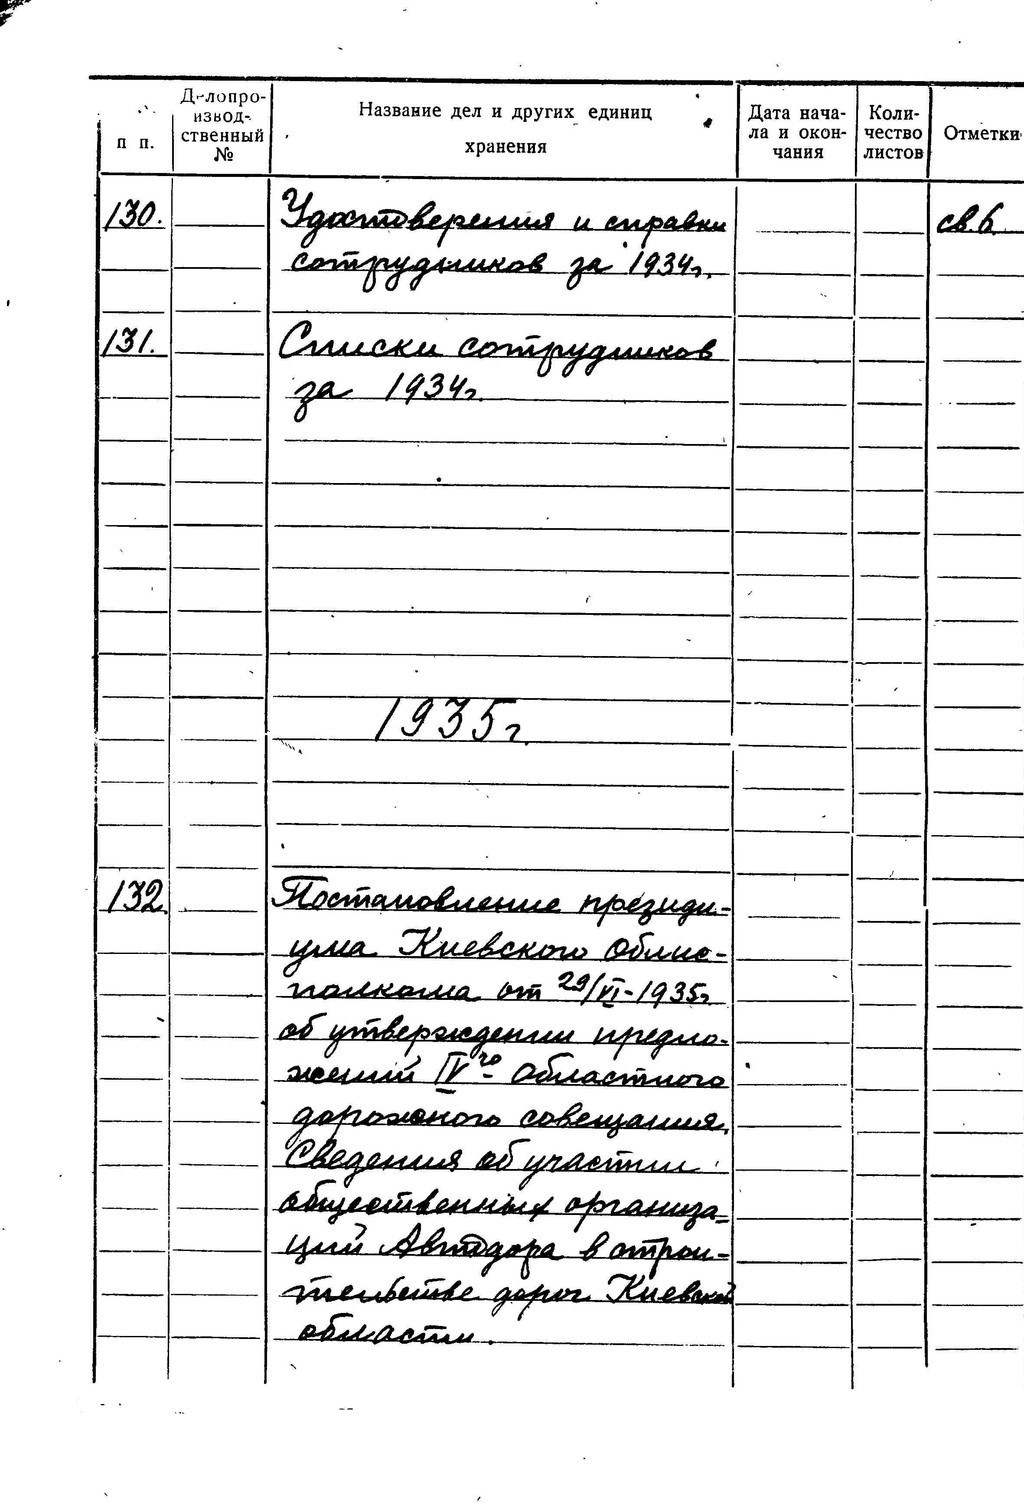 п п.
Делопро-
извод-
ственный
№
Название дел и других единиц
хранения
Дата нача-
ла и окон-
чания
Коли-
чество
листов
Отметки
130. Удостоверения и справки св.6.
сотрудников за 1934г.
131. Списки сотрудников
за 1934г.
1935г.
132. Постановление президи-
ума Киевского Облис-
полкома от 29/VI-1935г.
об утверждении предло-
жений IVго Областного
дорожного совещания.
Сведения об участии
общественных организа-
ций Автодора в строи-
тельстве дорог Киевской
области.